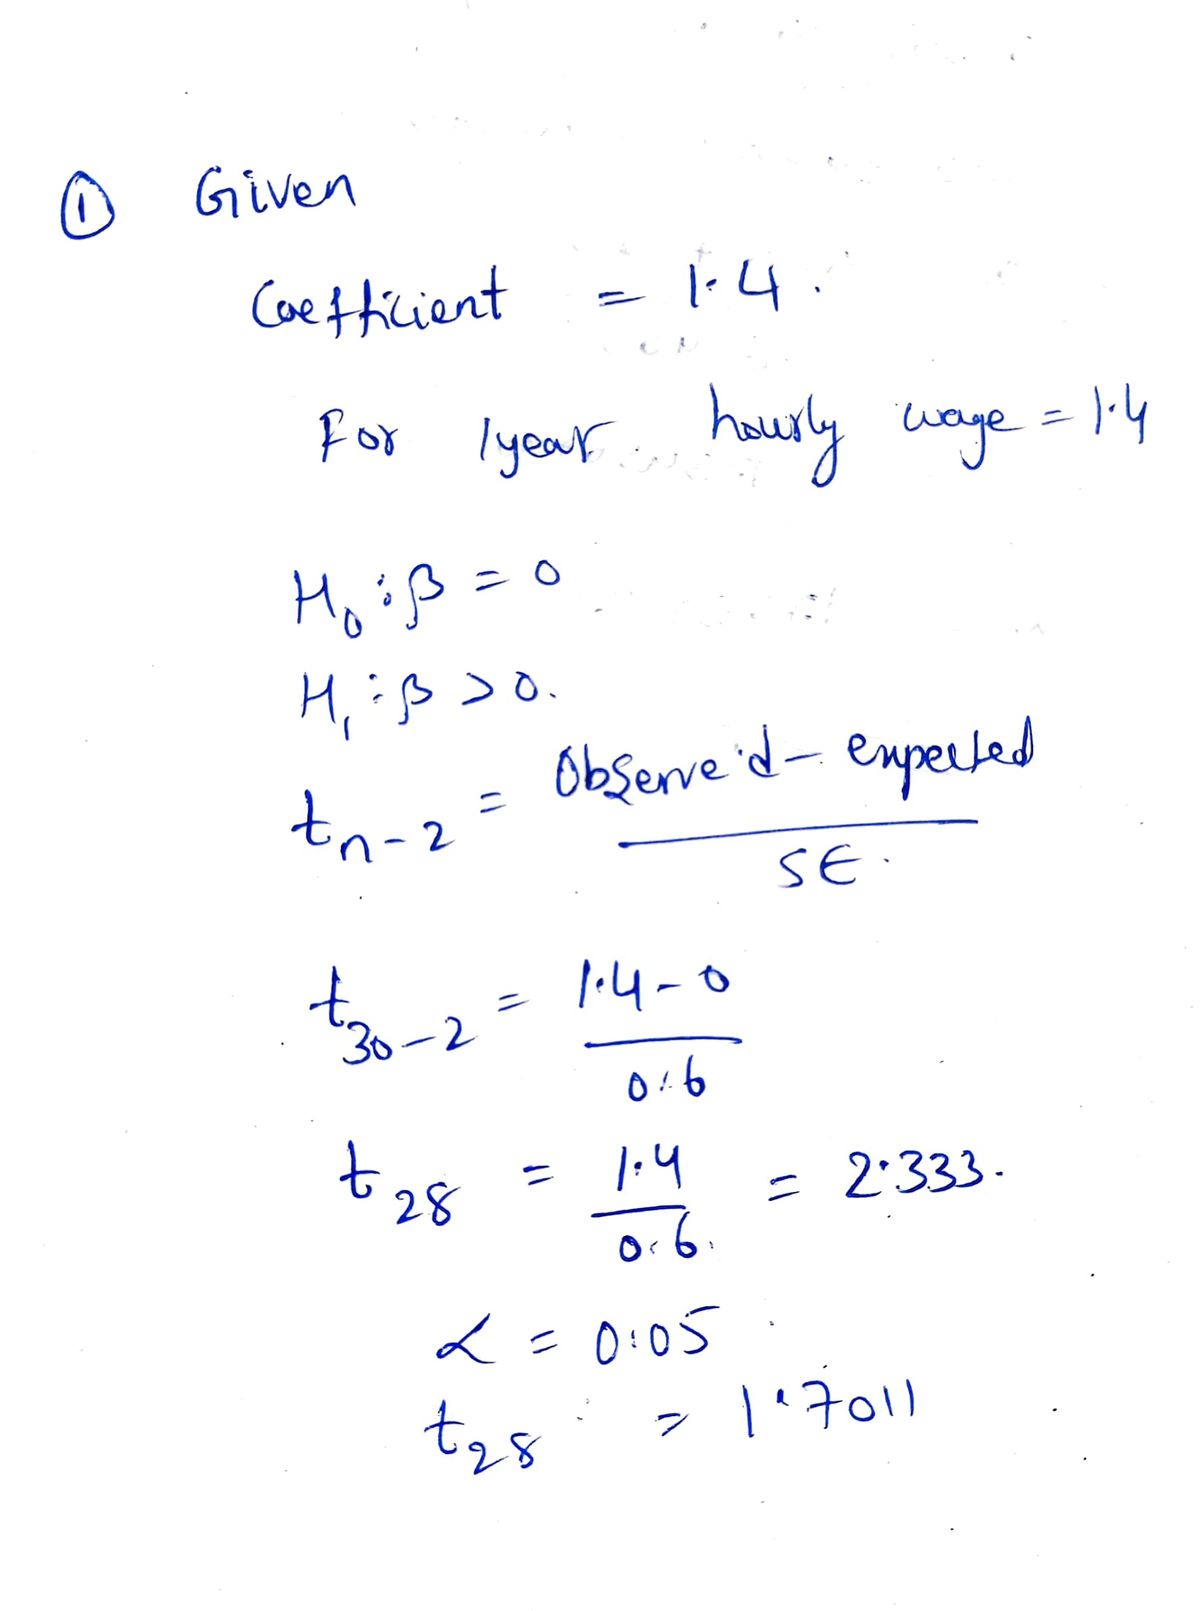 ① Given
Coefficient = 1.4.
For 1year hourly wage = 1.4
H₀ : β = 0
H₁ : β > 0.
tₙ₋₂ = Observe'd - expected
SE.
t₃₀₋₂ = 1.4 - 0
0.6
t₂₈ = 1.4 = 2.333.
0.6.
α = 0.05
t₂₈ = 1.7011